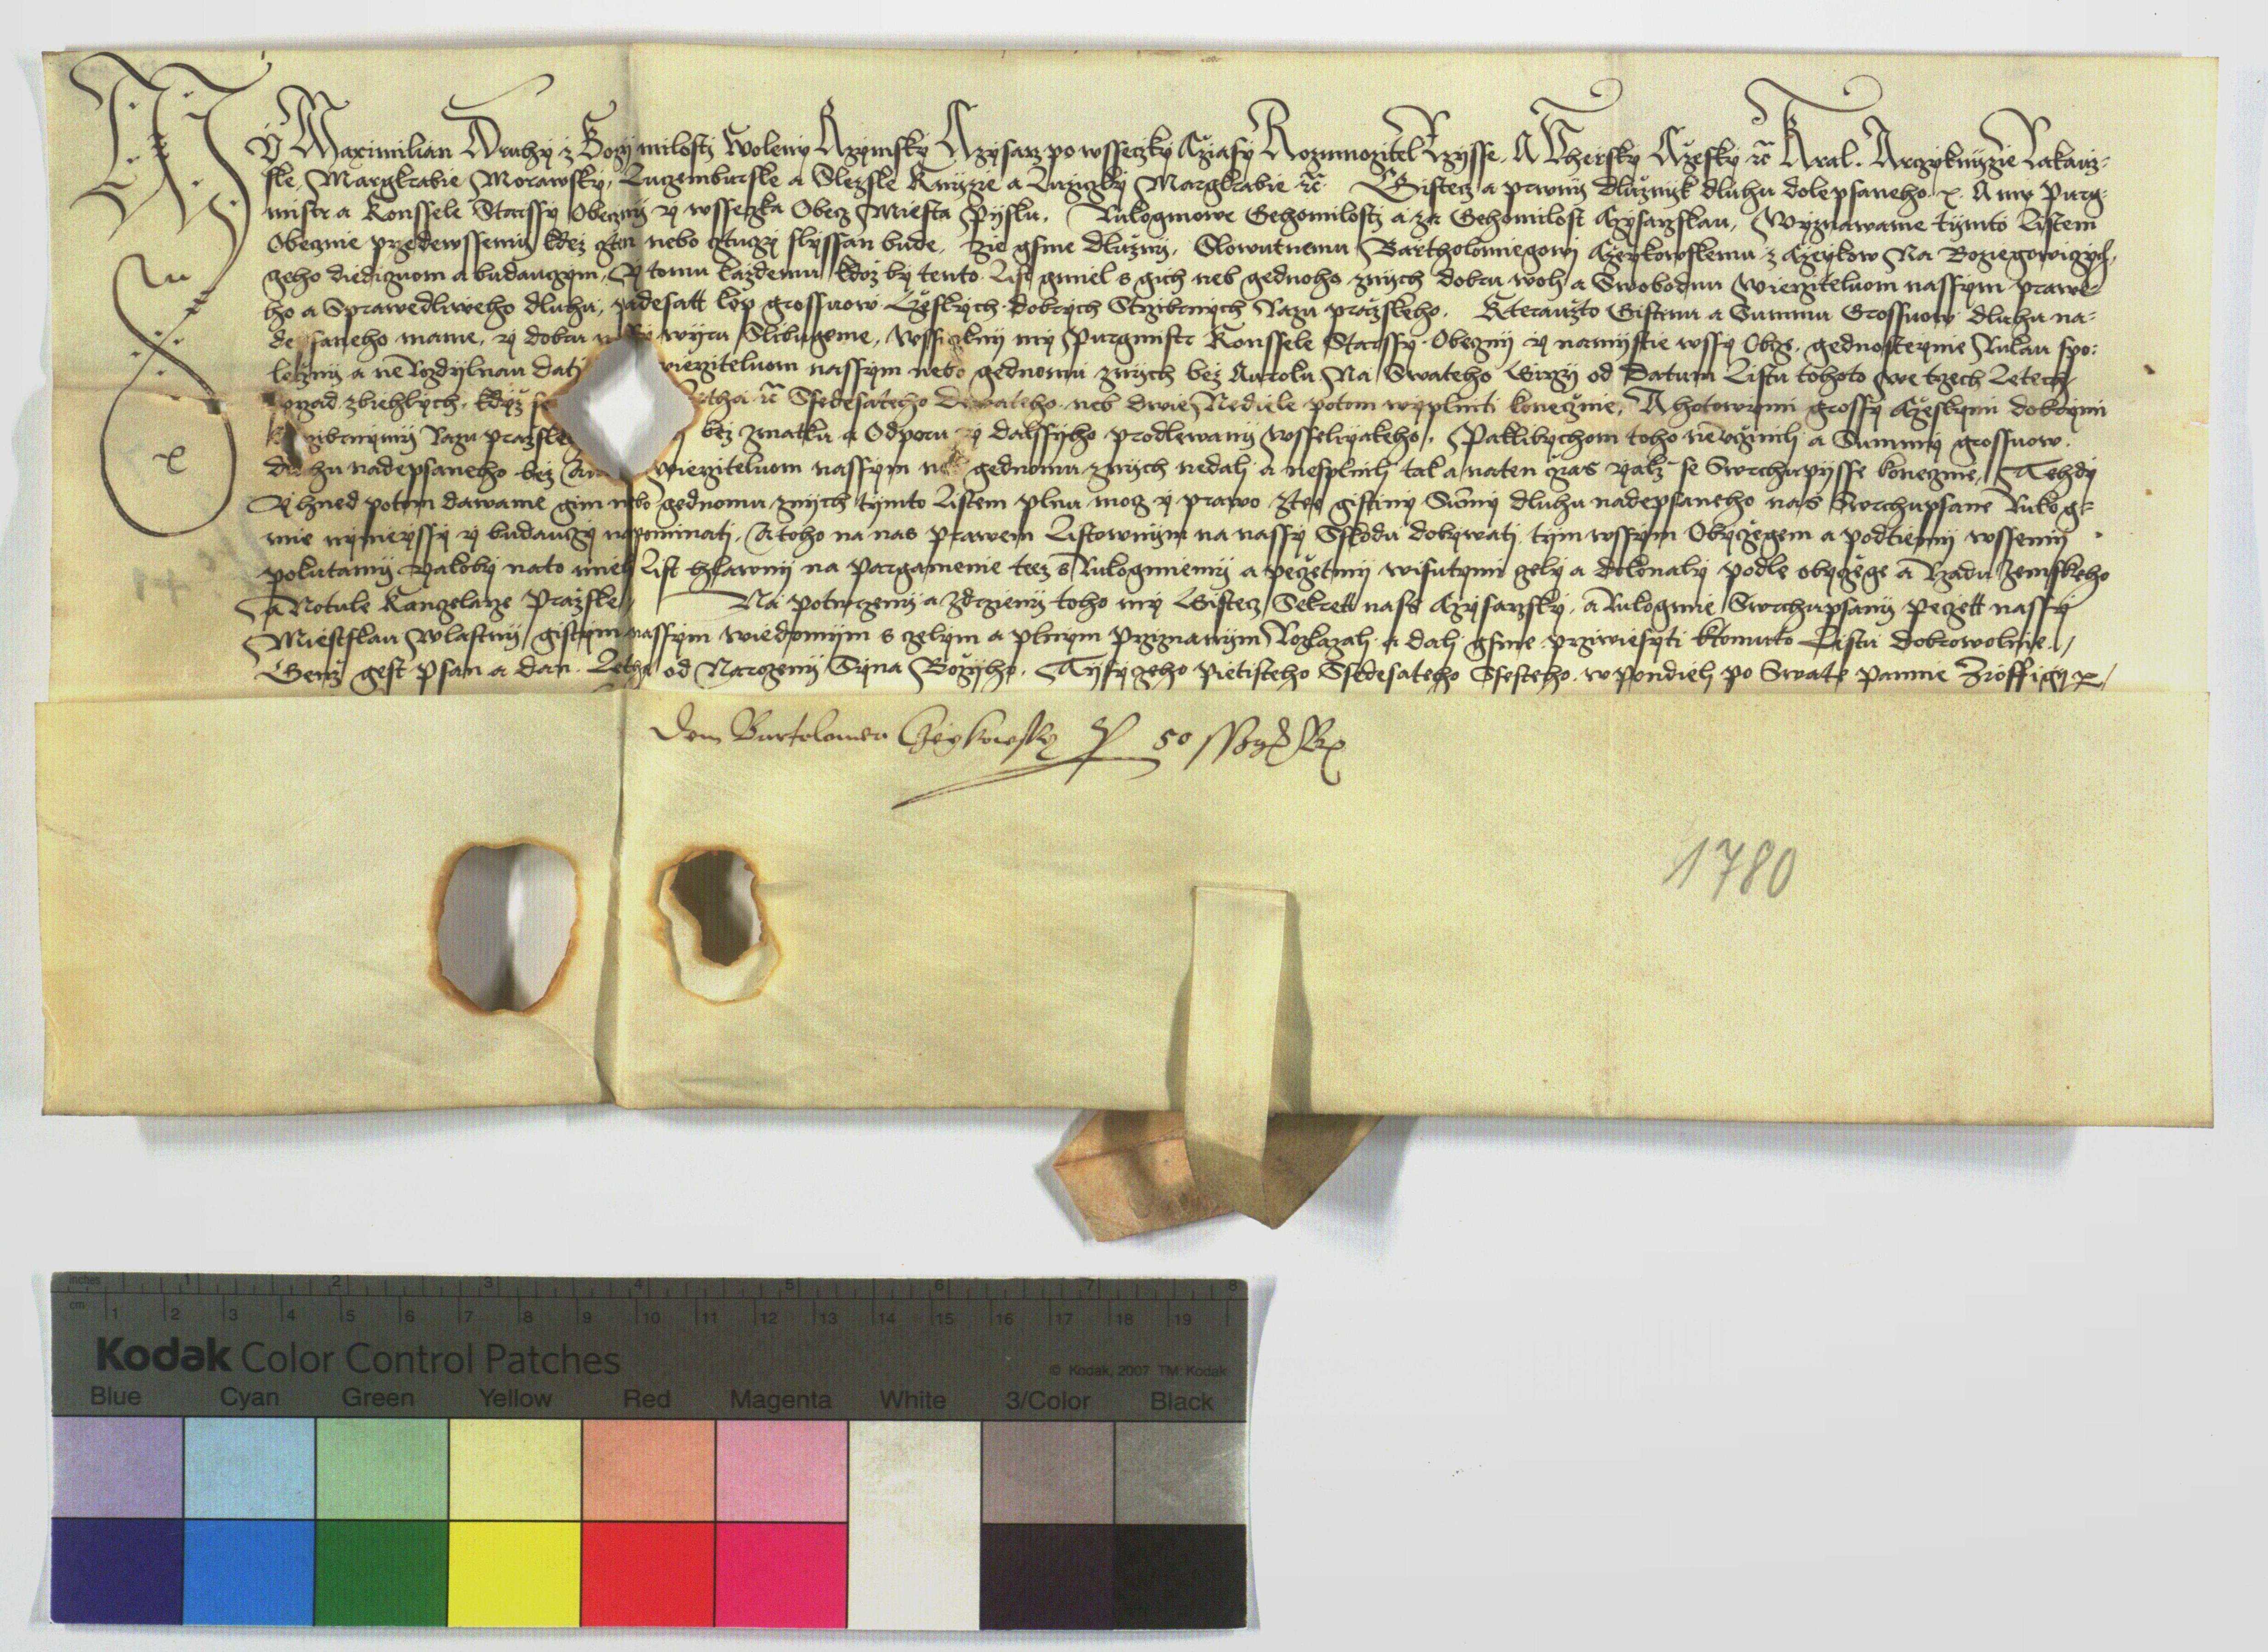 My Maximilian Druhy z Bozy milosti Woleny Rzymsky Czysarz po wsseczky Cziasy Rozmnozitel Rzysse. A Vhersky Czesky ꝛc̃ Kral. Arczyknyzie Rakauz-
ske, Margkrabie Morawsky, Luczemburske a Slezske Knyzie a Luziczky Margkrabie ꝛc̃ Gistecz a prwny dluznyk dluhu dolepsaneho. A my Purg-
mistr a Konssele Starssy Obeczny y wssezka Obecz Miesta Pysku, Rukogmowe Gehomilosti a za Gehomilost Czysarzskau, Wyznawame tymto Listem
Obecznie przedewssemi kdez cžten nebo cžtuczy slyssan bude, zie gsme dluzni, Slowutnemu Bartholomiegowi Czeykowskemu z Czeykow Na Boziegowiczych,
geho diediczuom a buduczym, y tomu kazdemu kdoz by tento List gmiel s gich neb gednoho znych dobru woli a Swobodnu Wierzitelnom nassym prawe-
ho a Sprawedliweho dluhu, padesatt kop grossuow Cžeskych dobrych Strzibrnych Razu prazskeho. Kterauzto Gistinu a Summu Grossuow dluhu na-
depsaneho mame, y dobru wyru Slibugeme, Wssiczkni my Purgmistr Konssele Starssy Obeczny y namystie wssy Obcze, gednosteynie Rukau spo-
leczny a neRozdylnau dati wierziteluom nassym nebo gednomu znych bez Auroku Na Swateho Girzy od Datum Listu tohoto we trzech Letech
porzad zbiehlych, kdyz se Ssedesateho Dewateho neb dwie Nediele potom wyplniti koneczne, A hotowymi grossy Cžeskymi dobrymi
Strzibrnymi Razu prazske bez zmatku a Odporu y dalssyho prodlewany wsselyakeho. Paklibychom toho nevczinili a Summy grossuow
dluhu nadepsaneho bez wierziteluom nassym neb gednomu znych nedali a nesplnili tak a naten cžas yakz se Swrchupysse koneczne, Tehdy
Y hned potom dawame gim nebo gednomu znych tymto Listem plnu mocz y prawo zte gistiny Sumy dluhu nadepsaneho nas Swrchupsane Rukog-
mie nyneyssy y buduczy napominati, A toho na nas prawem Listownym na nassy Sskodu dobywati, tym wssym Obyczegem a podtiemi wssemi
pokutami yakoby nato miel List hlawni na Pargamenie teez s Rukogmiemi a peczetmi wisutymi czely a dokonaly podle obyczege a Rzadu Zemskeho
a Notule Kanczelarze Prazske, Na potwrzeny a zdrzeny toho my Gistecz Sekrett nass Czysarzsky, a Rukogmie Swrchupsany peczett nassy
Miestskau Wlastny gistym nassym wiedomim s czelym a plnym przyznanym Rozkazali a dali gsme przywiesyti ktomuto Listu dobrowolnie.
Genz gest psan a dan. Letha od Narozeny Syna Bozyho, Tysyczeho Pietisteho Ssedesateho Ssesteho. w pondieli po Swate Pannie Zioffigi
Dem Bartolomeu Czeykowsky 50
1780
inches 1 2 3 4 5 6 7 8
cm 1 2 3 4 5 6 7 8 9 10 11 12 13 14 15 16 17 18 19
Kodak Color Control Patches
© Kodak, 2007 TM: Kodak
Blue Cyan Green Yellow Red Magenta White 3/Color Black